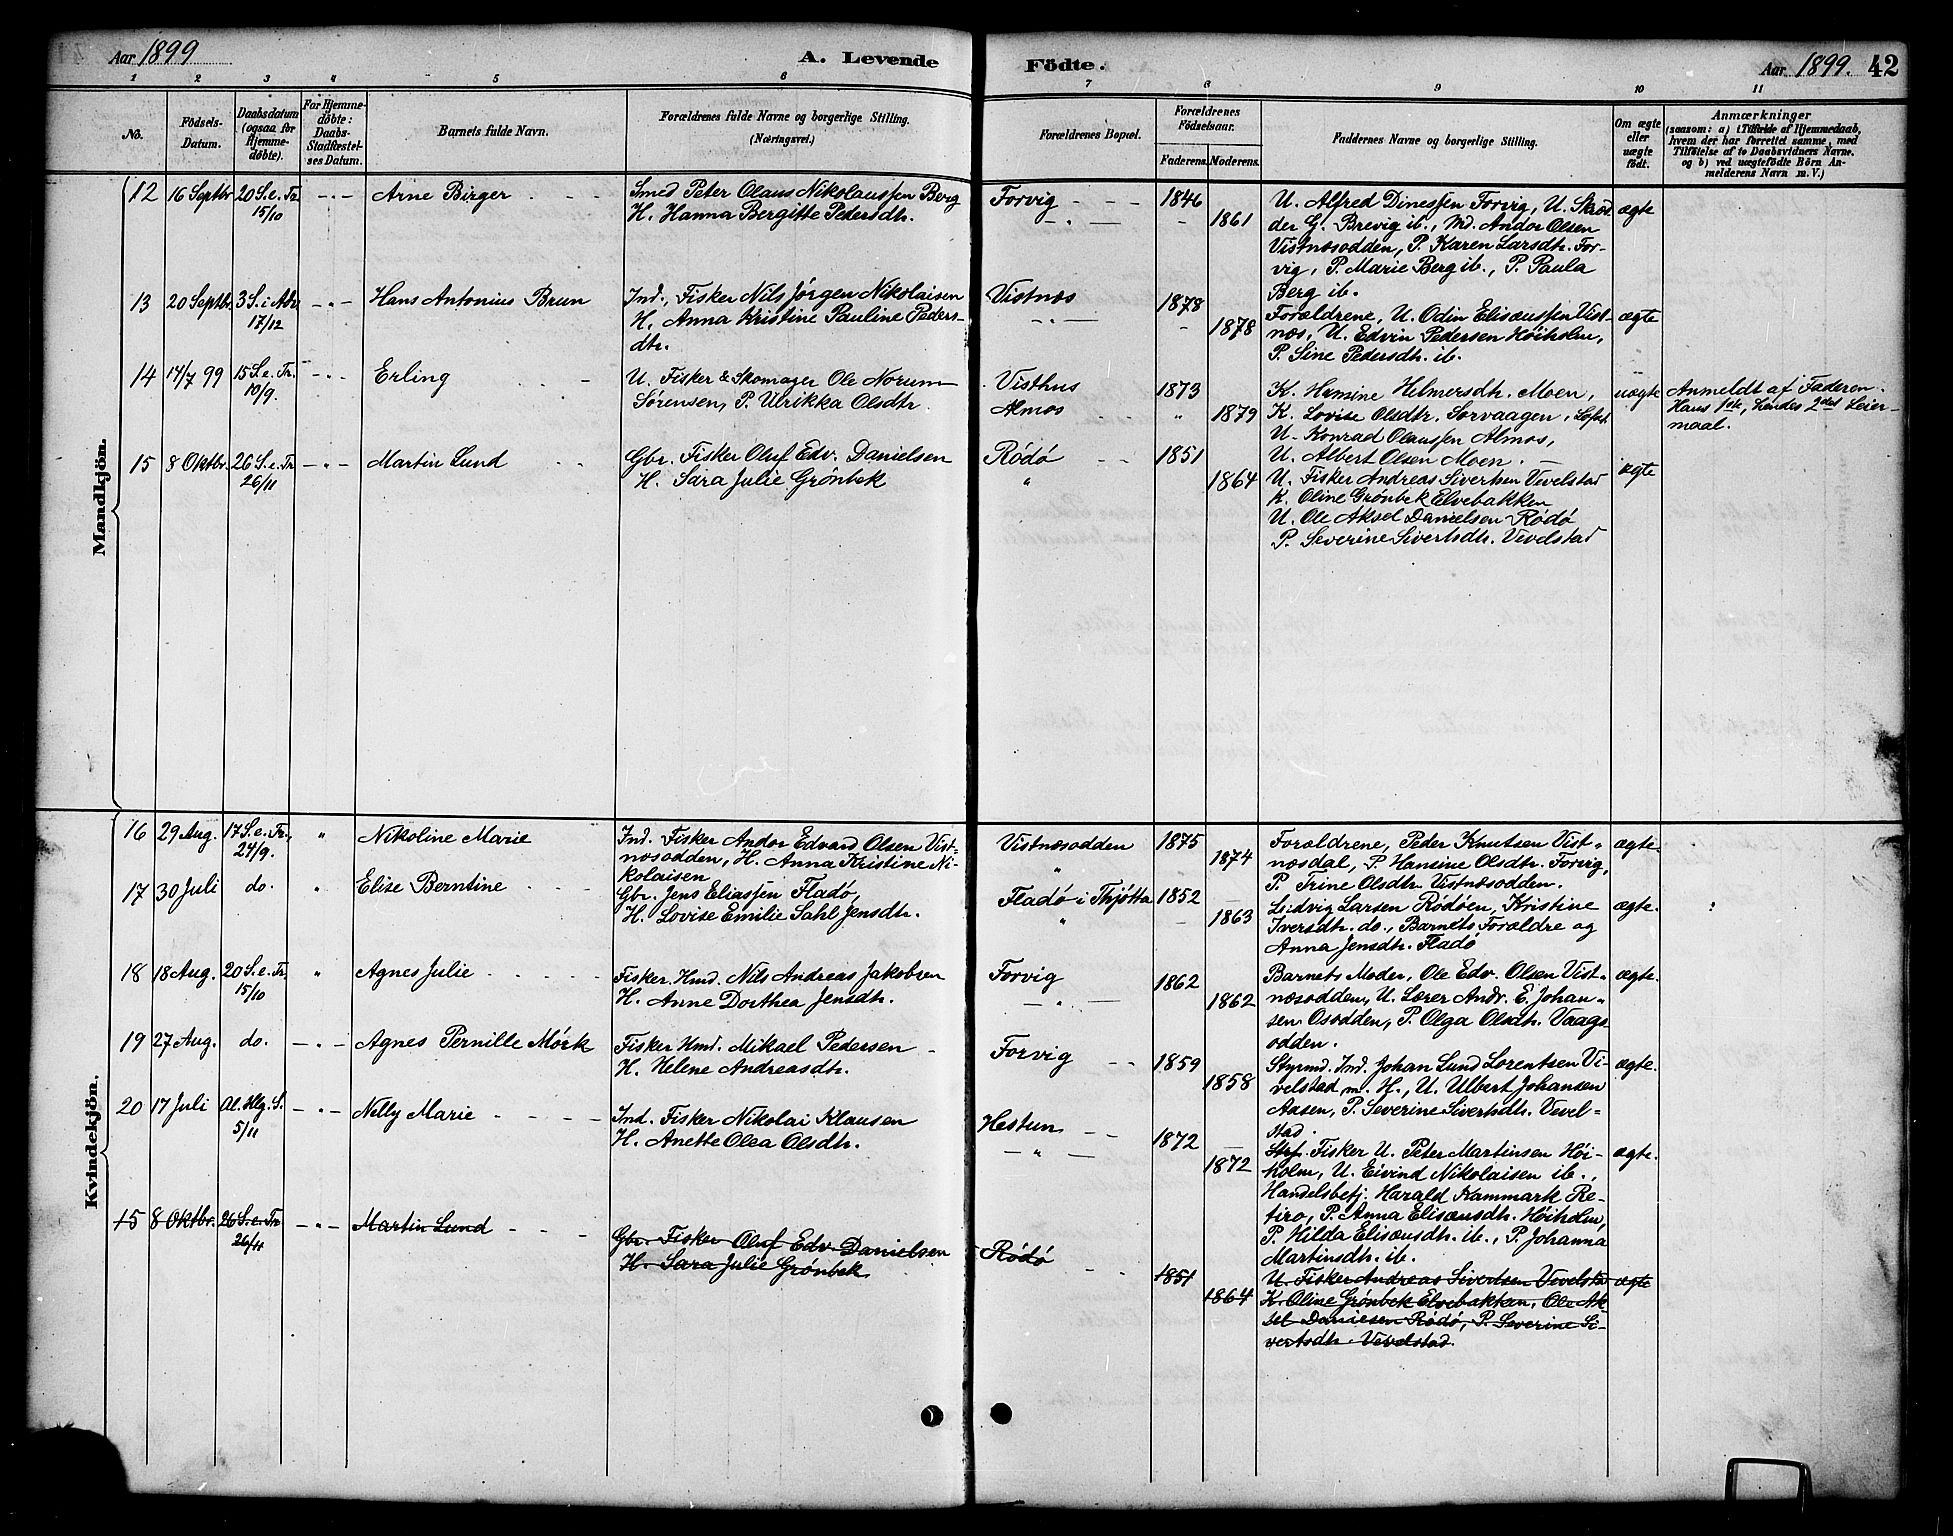 Aar 1899 A. Levende Födte. Aar 1899. 42
1 2 3 4 5 6 7 8 9 10 11
No.
Födsels-
Datum.
Daabsdatum
(ogsaa for
Hjemme-
döbte).
For Hjemme-
döbte:
Daabs-
Stadfæstel-
ses Datum.
Barnets fulde Navn.
Forældrenes fulde Navne og borgerlige Stilling.
(Næringsvei.)
Forældrenes Bopæl.
Forældrenes
Födselsaar.
Faderens. Moderens.
Faddernes Navne og borgerlige Stilling.
Om ægte
eller
uægte
födt.
Anmærkninger
(saasom: a) i Tilfælde af Hjemmedaab,
hvem der har forrettet samme, med
Tilföielse af to Daabsvidners Navne.
og b) ved uægtefödte Börn An-
melderens Navn m. V.)
Mandkjön.
12 16 Septbr. 20 S. e. Tr.
15/10
-"- Arne Birger
Smed Peter Olaus Nikolaussen Berg
H. Hanna Bergitte Pedersdtr.
Forvig
-"-
1846
1861
U. Alfred Dinessen Forvig, U. Skrød-
der G. Brevig ib., Md. Andor Olsen
Vistnæsodden, P. Karen Larsdtr. For-
vig, P. Marie Berg ib., P. Paula
Berg ib.
ægte
13 20 Septbr. 3 S. i Adv.
17/12
-"- Hans Antonius Brun
Ind., Fisker Nils Jörgen Nikolaisen
H. Anna Kristine Pauline Peders-
dtr.
Vistnæs
-"-
1878
1878
Forældrene, U. Odin Elisæussen Vist-
næs, U. Edvin Pedersen Höiholm,
P. Sine Pedersdtr. ib.
ægte
14 14/7 99 15 S. e. Tr.
10/9.
-"- Erling
U. Fisker & Skomager Ole Norum
Sörensen, P. Ulrikka Olsdtr.
Visthus
Almos
1873
" 1879
K. Hansine Helmersdtr. Moen,
K. Lovise Olsdtr. Sorvaagen, Lofot.
U. Konrad Olaussen Almos,
U. Albert Olsen Moen.
uægte
Anmeldt af Faderen.
Hans 1ste, hendes 2det Leier-
maal.
15 8 Oktbr. 26 S. e. Tr.
26/11
-"- Martin Lund
Gbr. Fisker Oluf Edv. Danielsen
H. Sara Julie Grönbek
Rödö
"
"
1851
1864
U. Fisker Andreas Sivertsen Vevelstad
K. Oline Grönbek Elvebakken
U. Ole Aksel Danielsen Rödö
P. Severine Sivertsdtr. Vevelstad
ægte
Kvindekjön.
16 29 Aug. 17 S. e. Tr.,
24/9.
" Nikoline Marie
Ind. Fisker Andor Edvard Olsen Vist-
næsodden, H. Anna Kristine Ni-
kolaisen
Vistnæsodden
"
1875
1874
Forældrene, Peder Knutsen Vist-
næsdal, P. Hansine Olsdtr. Forvig,
P. Trine Olsdtr. Vistnæsodden.
ægte
17 30 Juli do. " Elise Berntine
Gbr. Jens Eliassen Fladö,
H. Lovise Emilie Sahl Jensdtr.
Fladö i Thjötta
"
1852
1863
Ludvig Larsen Rödöen, Kristine
Iversdtr. do., Barnets Forældre og
Anna Jensdtr. Fladö
ægte.
18 18 Aug. 20 S. e. Tr.
15/10
" Agnes Julie
Fisker Hmd. Nils Andreas Jakobsen
H. Anne Dorthea Jensdtr.
Forvig
-"-
1862
1862
Barnets Moder, Ole Edv. Olsen Vist-
næsodden, U. Lærer Andr. E. Johan-
sen Osodden, P. Olga Olsdtr. Vaags-
odden.
ægte.
19 27 Aug. do. -"- Agnes Pernille Mörk
Fisker Hmd. Mikael Pedersen
H. Helene Andreasdtr.
Forvig
1859
1858
Styrmd. Ind. Johan Lund Lorentsen Vi-
velstad m. H., U. Ulbert Johansen
Aasen, P. Severine Sivertsdtr. Vevel-
stad.
ægte.
20 17 Juli Al. Hlg. S.
5/11
-"- Nelly Marie
Ind. Fisker Nikolai Klausen
H. Anette Olea Olsdtr.
Hestun
-"-
1872
1872
Strf. Fisker U. Peter Martinsen Höi-
holm, U. Eivind Nikolaisen ib.,
Handelsbetj. Harald Kammark Re-
tiro, P. Anna Elisæusdtr. Höiholm,
P. Hilda Elisæusdtr. ib., P. Johanna
Martinsdtr. ib.
ægte.
15 8 Oktbr. 26 S. e. Tr.
26/11
-"- Martin Lund
Gbr. Fisker Oluf Edv. Danielsen
H. Sara Julie Grönbek
Rödö
1851
1864
U. Fisker Andreas Sivertsen Vevelstad
K. Oline Grönbek Elvebakken, Ole Ak-
sel Danielsen Rödö, P. Severine Si-
vertsdtr. Vevelstad.
ægte